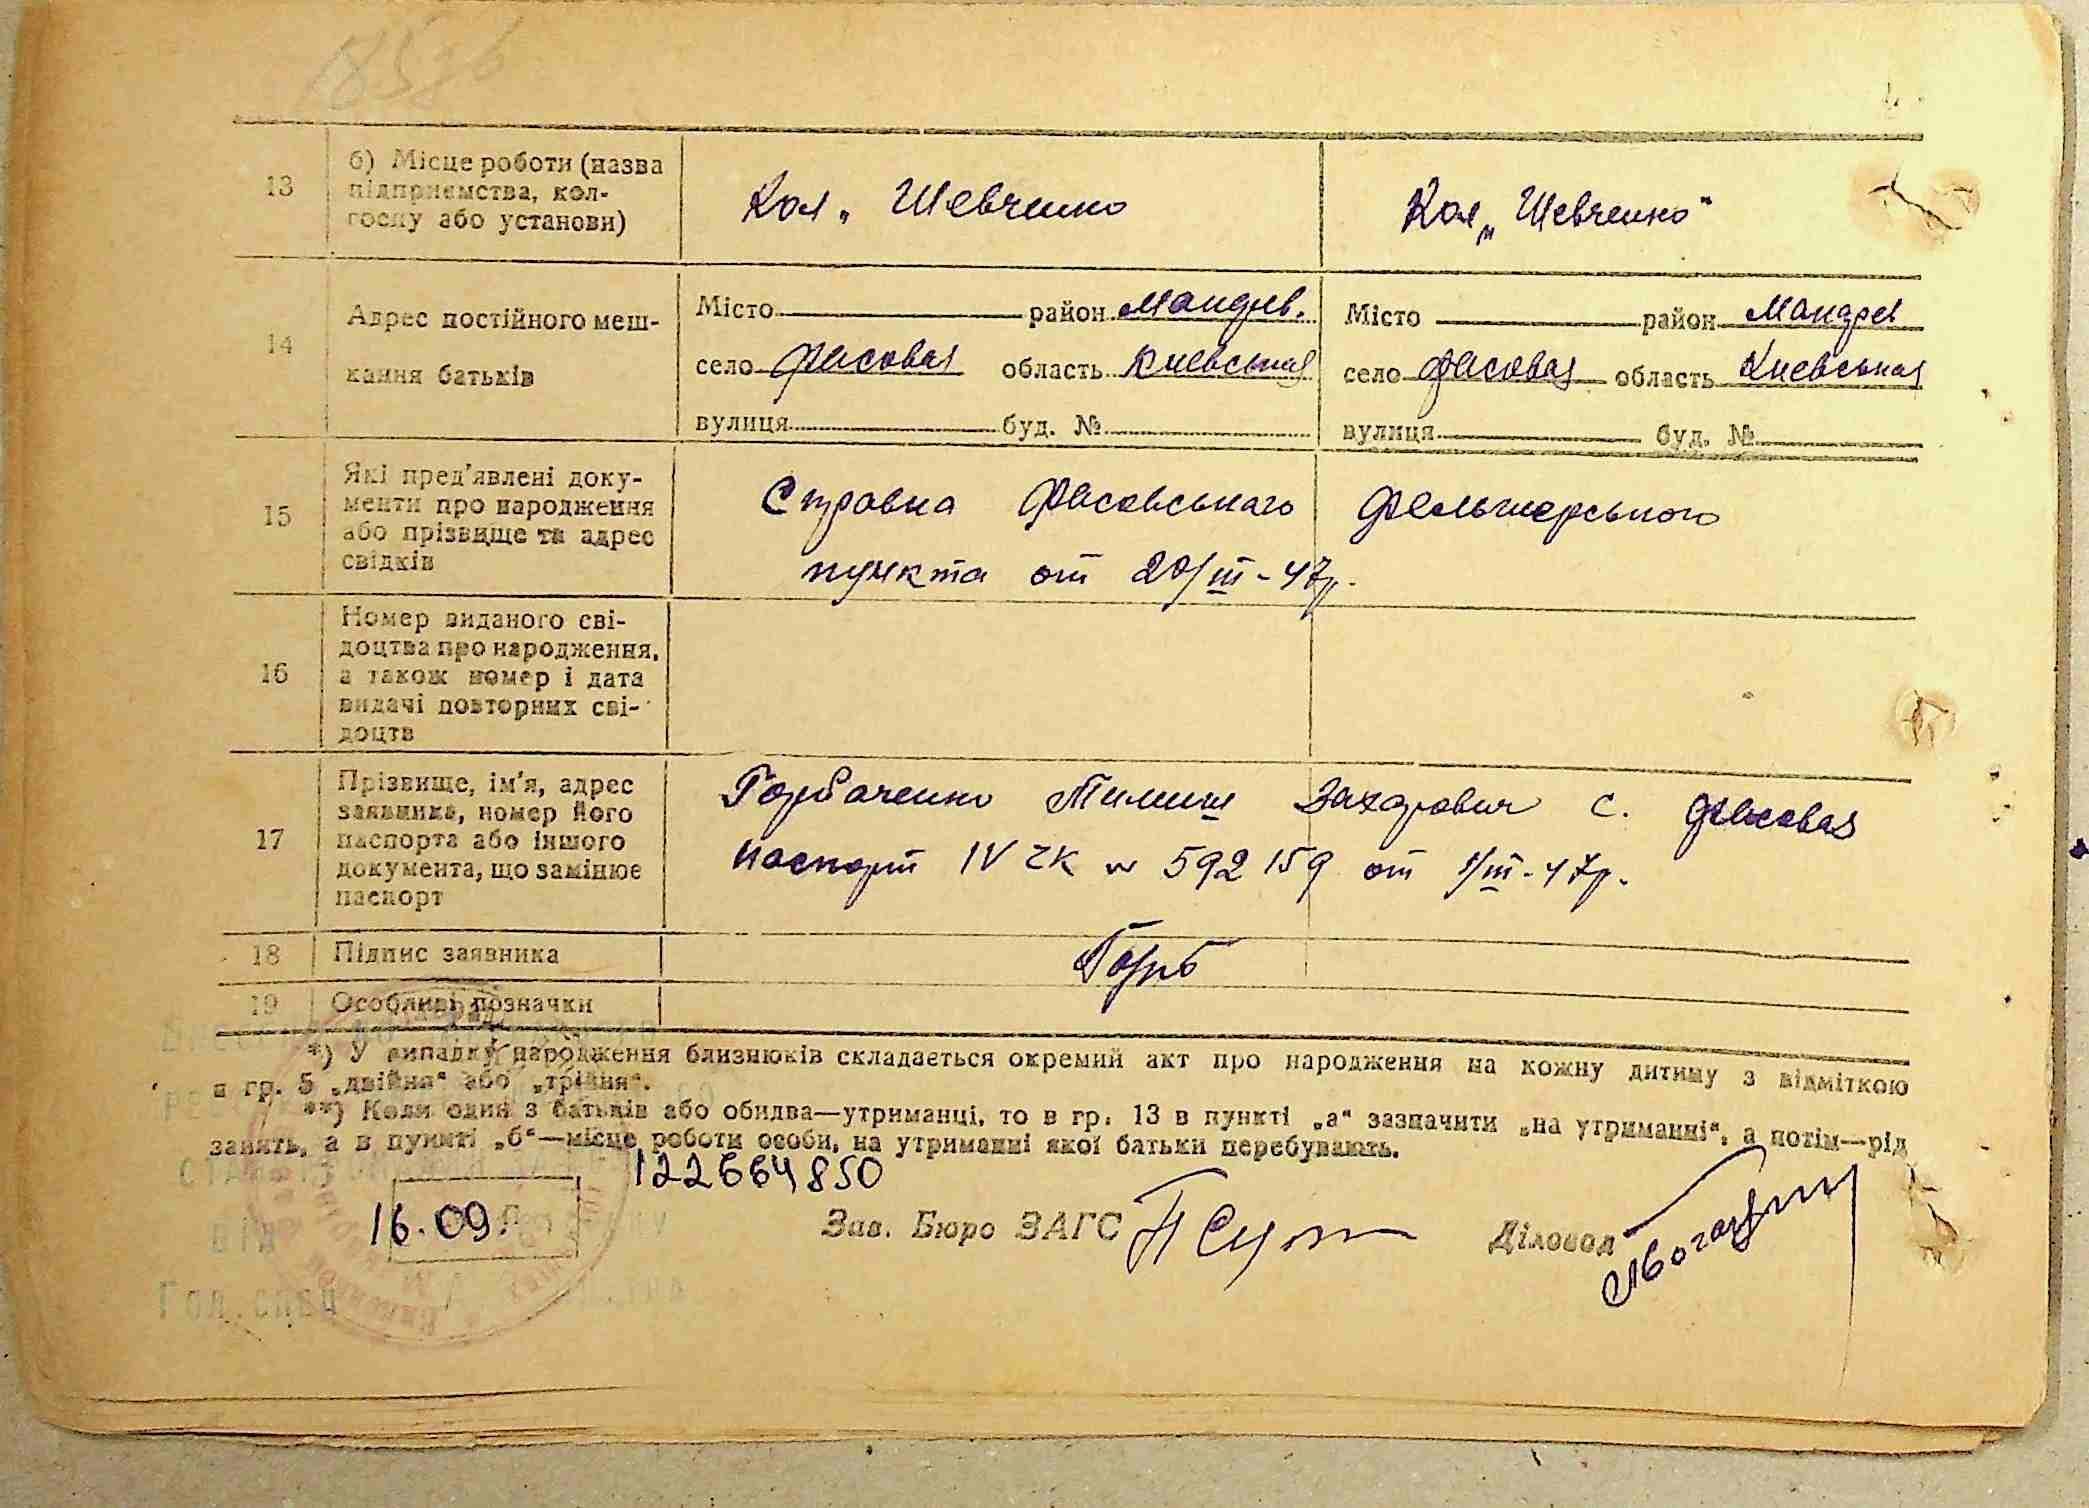 13
б) Місце роботи (назва
підприємства, кол-
госпу або установи)
Кол „ Шевченко
Кол „ Шевченко"
14
Адрес постійного меш-
кання батьків
Місто район Макдлев.
село Фасовая область Киевськая
вулиця буд. №
Місто район Макарев
село Фасовая область Киевськая
вулиця буд. №
15
Які пред'явлені доку-
менти про народження
або прізвище та адрес
свідків
Справка Фасовського Фельшерського
пункта от 20/III-47р.
16
Номер виданого сві-
доцтва про народження,
а також номер і дата
видачі повторних сві-
доцтв
17
Прізвище, ім'я, адрес
заявника, номер його
паспорта або іншого
документа, що замінює
паспорт
Горбаченко Тимиш Захарович с. Фасовая
паспорт IV ЧК № 592159 от 1/III-47р.
18
Підпис заявника
Горб
19
Особливі позначки
*) У випадку народження близнюків складається окремий акт про народження на кожну дитину з відміткою
в гр. 5 „двійня" або „трійня".
**) Коли один з батьків або обидва—утриманці, то в гр. 13 в пункті „а" зазначити „на утриманні", а потім—рід
занять, а в пункті „б"—місце роботи особи, на утриманні якої батьки перебувають.
122664850
16.09.
Зав. Бюро ЗАГС
Діловод